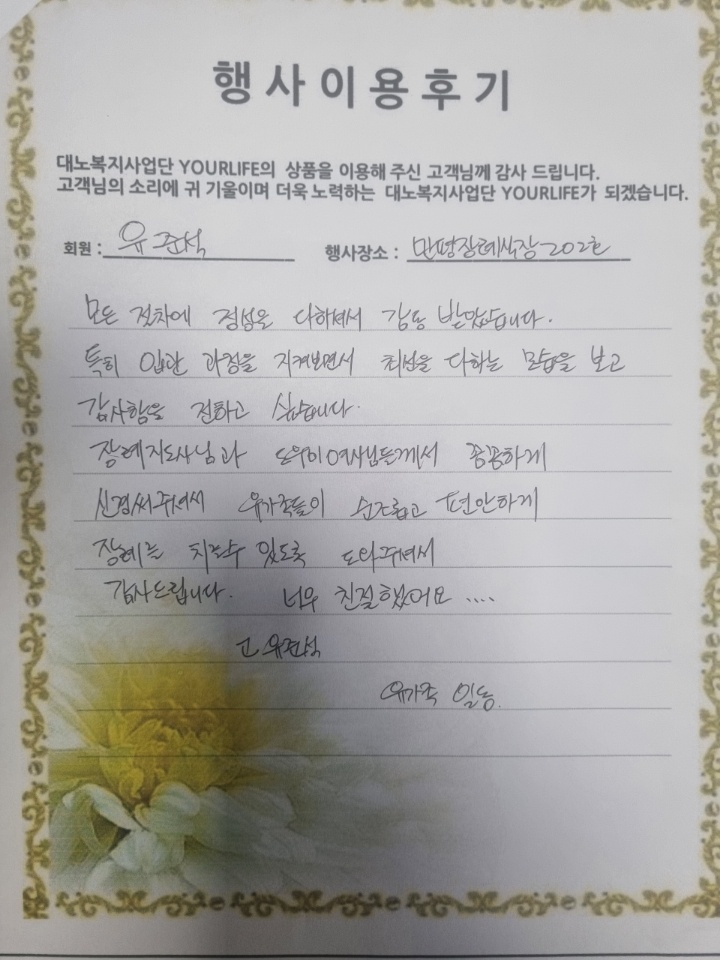 행사이용후기
대노복지사업단 YOURLIFE의 상품을 이용해 주신 고객님께 감사 드립니다.
고객님의 소리에 귀 기울이며 더욱 노력하는 대노복지사업단 YOURLIFE가 되겠습니다.
회원 : 유준석 행사장소 : 만평장례식장 202호
모든 절차에 정성을 다하셔서 감동 받았습니다.
특히 입관 과정을 지켜보면서 최선을 다하는 모습을 보고
감사함을 전하고 싶습니다.
장례지도사님과 도우미여사님들께서 꼼꼼하게
신경써주셔서 유가족들이 순조롭고 편안하게
장례를 치를수 있도록 도와주셔서
감사드립니다. 너무 친절했어요 ....
고 유준석
유가족 일동.